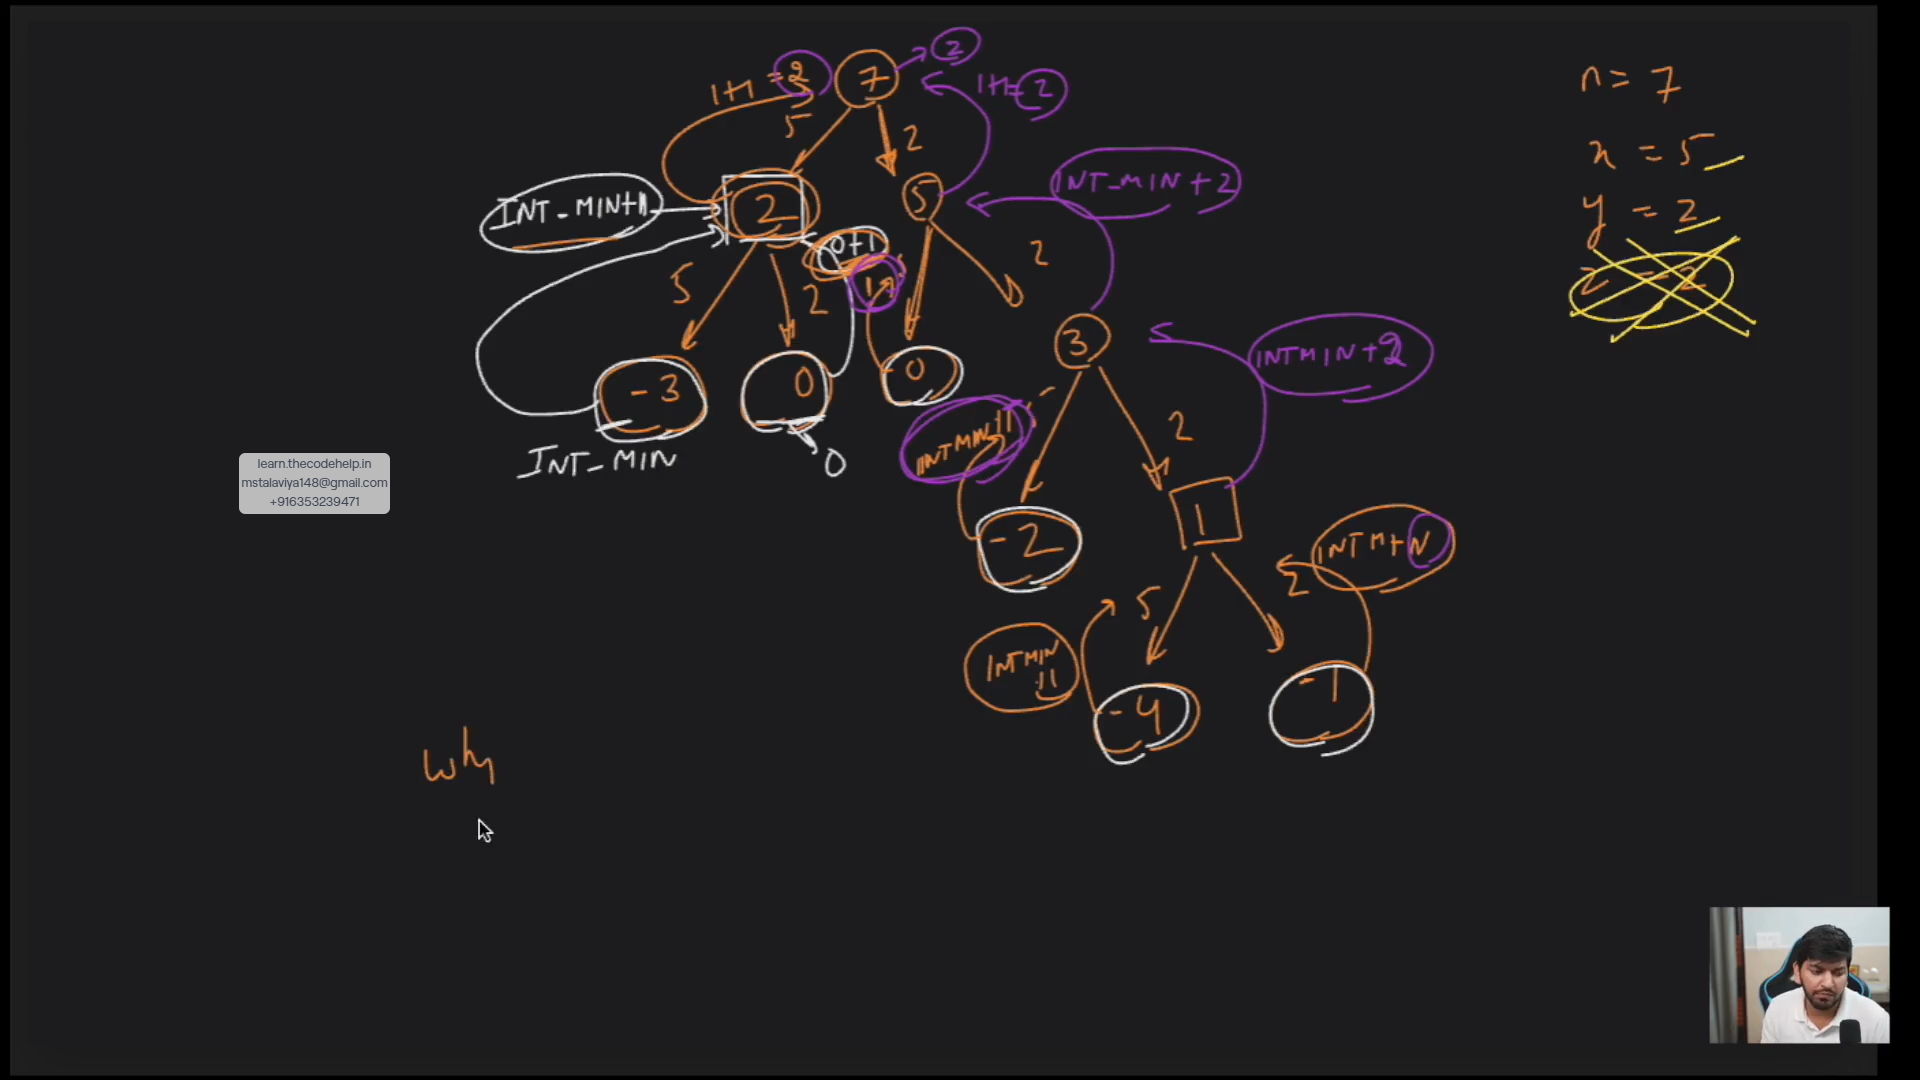 1+1 = 2
7
2
1+1=2
5
2
n = 7
x = 5
y = 2
2 = 2
INT-MIN+1
2
5
INT-MIN+2
0+1
5
2
2
- 3
0
0
3
INTMIN+2
INT-MIN
0
INTMIN+1
2
- 2
1
INTM+N
5
2
INTMIN
- 4
- 1
learn.thecodehelp.in
mstalaviya148@gmail.com
+916353239471
why